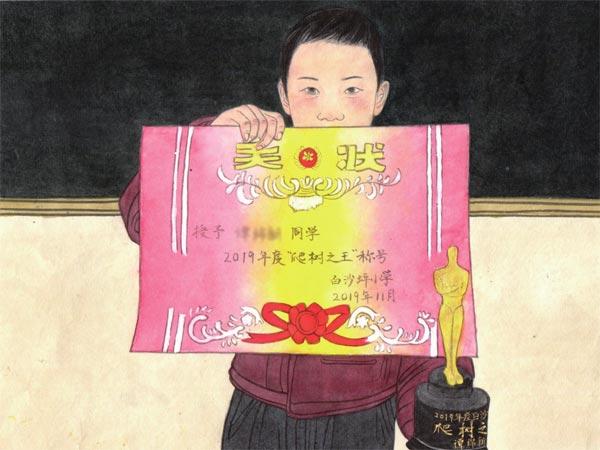 奖状
授予 同学
2019年度"爬树之王"称号
白沙坪小学
2019年11月
2019年度白沙
爬树之
谭